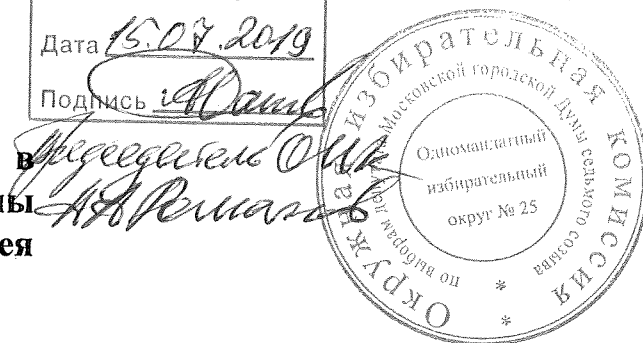 Дата 15.07.2019
Подпись
в Председатель ОИК
ны А А Романов
ея
Окружная избирательная комиссия
по выборам депутатов Московской городской Думы седьмого созыва
Одномандатный
избирательный
округ № 25
* *